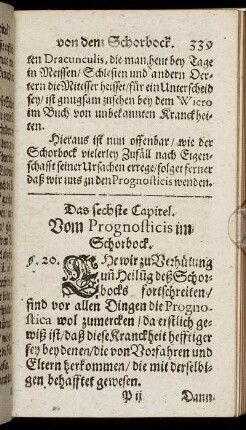 von dem Schorbock. 339
ten Dracunculis, die man heut bey Tage
in Meissen/ Schlesien und andern Oer-
tern die Mitesser heisset/ für ein Unterscheid
sey/ ist gnugsam zusehen bey dem Wiero
im Buch von unbekannten Kranckhei-
ten.
Hieraus ist nun offenbar/ wie der
Schorbock vielerley Zufäll nach Eigen-
schafft seiner Ursachen errege/ folget ferner
daß wir uns zu den Prognosticis wenden.
Das sechste Capitel.
Vom Prognosticis im
Schorbock.
§. 20. EHe wir zu Verhütung
uñ Heilũg deß Schor-
bocks fortschreiten/
sind vor allen Dingen die Progno-
stica wol zumercken/ da erstlich ge-
wiß ist/ daß diese Kranckheit hefftiger
sey bey denen/ die von Vorfahren und
Eltern herkommen/ die mit derselbi-
gen behafftet gewesen.
P ij Dann